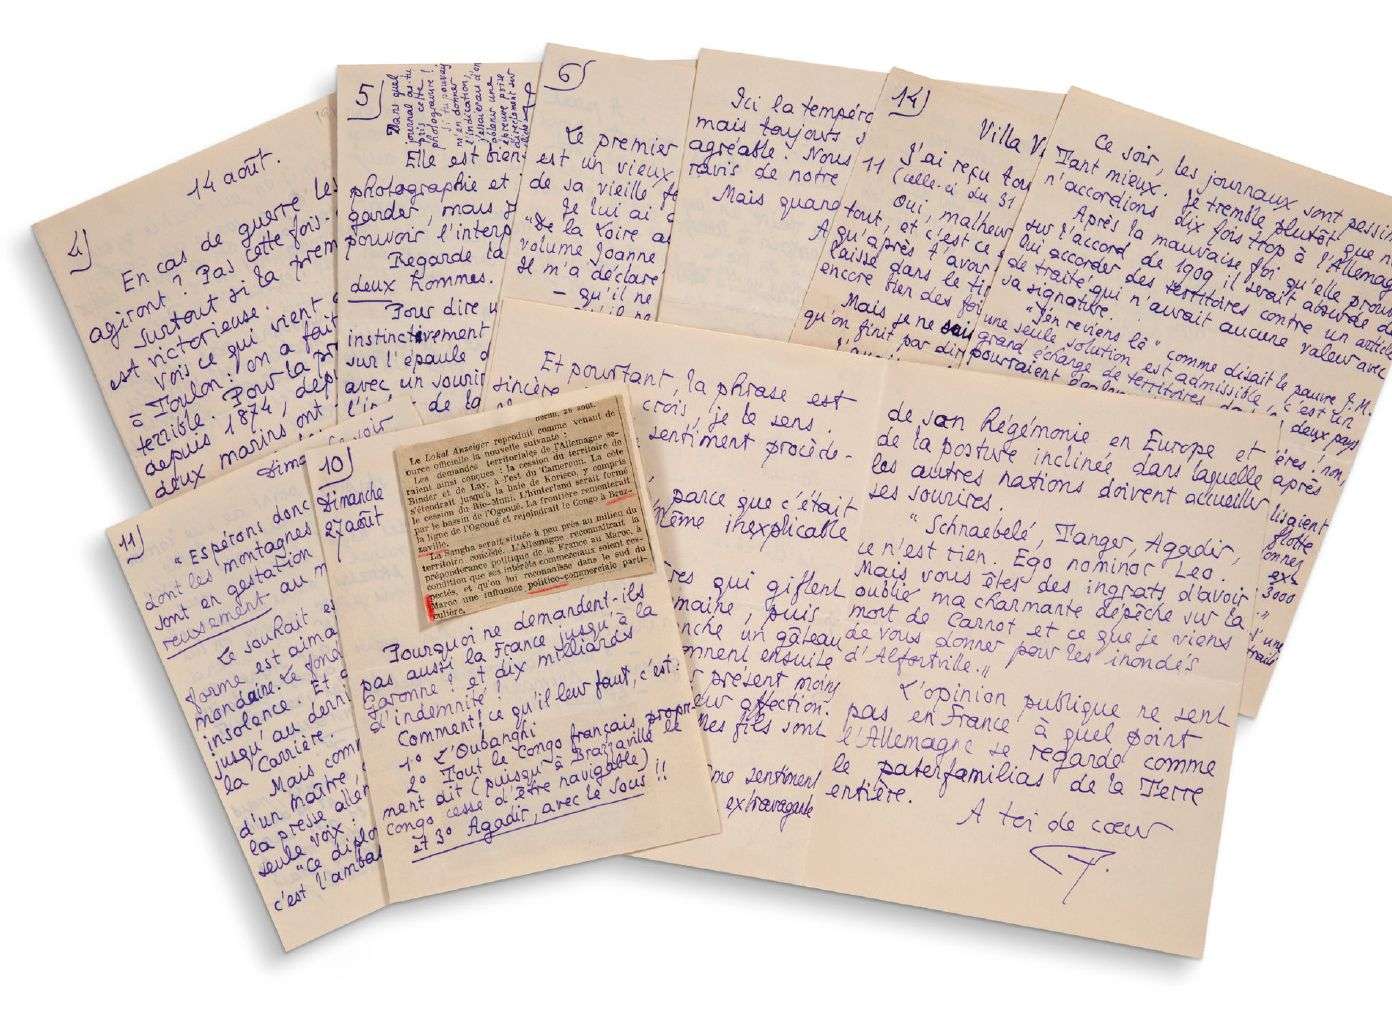 4)
14 août.
En cas de guerre les
agiront ? Pas cette fois-
Surtout si la prem
est victorieuse.
Vois ce qui vient
à Toulon : on a fait
terrible. Pour la pr
depuis 1874, dep
deux marins ont
5)
Dans quel
journal as-tu
pris cette
photogravure ?
Si tu pouvais
m'en donner
l'indication,
j'essaierais d'en
obtenir une
épreuve prise
directement sur
Elle est bien
photographie et
garder, mais je
pouvoir l'interp
Regarde la
deux hommes.
Pour dire
instinctivement
sur l'épaule d
avec un souri
6)
Le premier
est un vieux
de sa vieille fe
Je lui ai
"De la Loire au
volume Joanne
Il m'a déclaré
– qu'il ne
Ici la tempéra
mais toujours
agréable. Nous
ravis de notre
Mais quand
A
14)
Villa V.
J'ai reçu tou
11 (celle-ci du 31
Oui, malheur
tout, et c'est ce
qu'après t'avoir
laisse dans le ti
encore tien des fo
Mais je ne sais
qu'on finit par dir
Ce soir, les journaux sont pessim
Tant mieux. Je tremble plutôt que n
n'accordions dix fois trop à l'Allemag
Après la mauvaise foi qu'elle prouv
sur l'accord de 1909, il serait absurde de
lui accorder des territoires contre un article
de traité qui n'aurait aucune valeur avec
sa signature.
"J'en reviens là" comme disait le pauvre J.M.
une seule solution est admissible : c'est un
grand échange de territoires
deux pays
pourraient
ères ! non,
après
lisaient
flotte
onnes
ex-
3000
Et pourtant, la phrase est
sincère
crois, je le sens.
sentiment procède-
, parce que c'était
même inexplicable
res qui giflent
maine, puis
nche un gâteau
nnent ensuite
présent moins
leur affection.
Mes fils sont
me sentiment
extravagante
de son hégémonie en Europe et
de la posture inclinée dans laquelle
les autres nations doivent accueillir
ses sourires.
"Schnaebelé, Tanger, Agadir,
ce n'est rien. Ego nominor Leo.
Mais vous êtes des ingrats d'avoir
oublié ma charmante dépêche sur la
mort de Carnot et ce que je viens
de vous donner pour les inondés
d'Alfortville."
L'opinion publique ne sent
pas en France à quel point
l'Allemagne se regarde comme
le paterfamilias de la Terre
entière.
A toi de cœur
11)
Dima
"Espérons donc
dont les montagnes
sont en gestation
reusement au m
Le souhait es
forme est aima
mondaine. Le fond
insolence. Et
jusqu'au derni
la Carrière.
Mais comm
d'un maître,
la presse allem
seule voix :
"Ce diplo
c'est l'amba
10)
Dimanche
27 août
Le Lokal Anzeiger reproduit comme venant de
source officielle la nouvelle suivante :
Les demandes territoriales de l'Allemagne se-
raient ainsi conçues : la cession du territoire de
Binder et de Lay, à l'est du Cameroun. La côte
s'étendrait jusqu'à la baie de Korisco, y compris
la cession du Rio-Muni. L'hinterland serait formé
par le bassin de l'Ogooué. La frontière remonterait
la ligne de l'Ogooué et rejoindrait le Congo à Braz-
zaville.
La Sangha serait située à peu près au milieu du
territoire concédé. L'Allemagne reconnaîtrait la
prépondérance politique de la France au Maroc, à
condition que ses intérêts commerciaux soient res-
pectés, et qu'on lui reconnaisse dans le sud du
Maroc une influence politico-commerciale parti-
culière.
Pourquoi ne demandent-ils
pas aussi la France jusqu'à la
Garonne ? et dix milliards
d'indemnité ?
Comment ! ce qu'il leur faut, c'est :
1º L'Oubanghi
2º Tout le Congo français propre-
ment dit (puisqu'à Brazzaville le
Congo cesse d'être navigable)
et 3º Agadir, avec le Sous !!